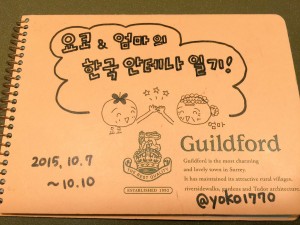 요코 & 엄마의
한국 안테나 일기!
요코
엄마
Guildford
Guildford is the most charming
and lovely town in Surrey.
It has maintained its attractive rural villages,
riversidewalks, gardens and Tudor architecture
2015. 10. 7
~ 10. 10
THE BEST QUALITY
ESTABLISHED 1992
@yoko1770